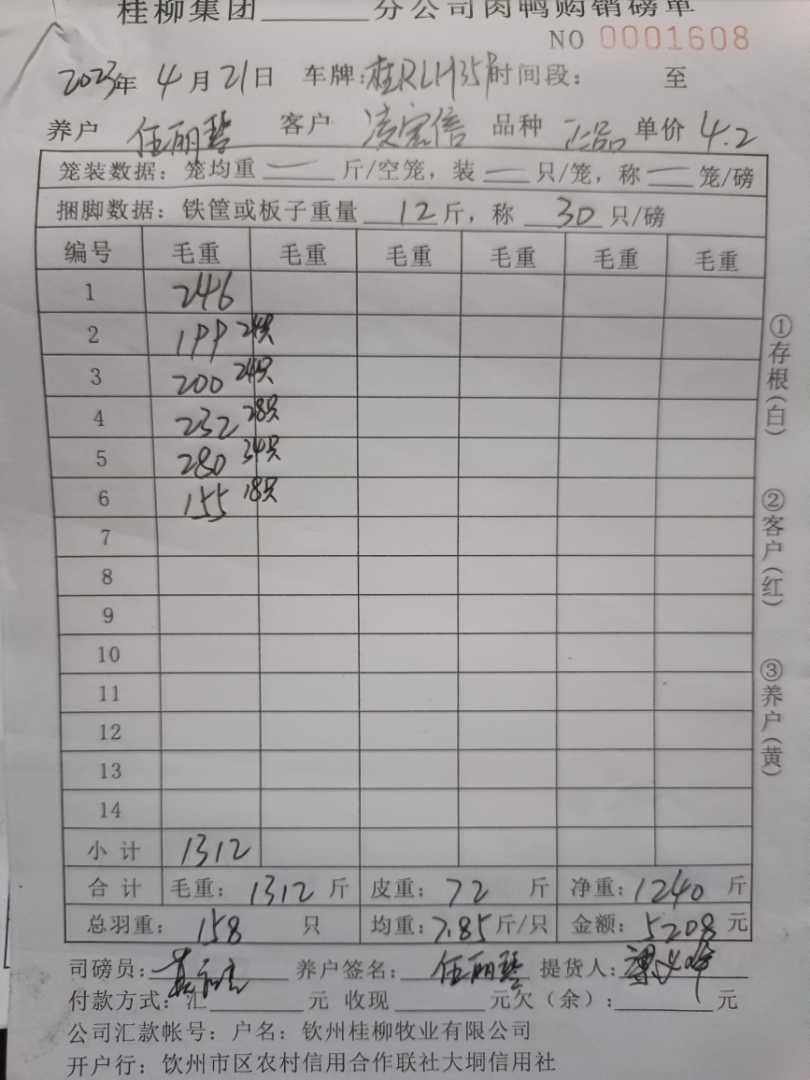 桂柳集团______分公司肉鸭购销磅单
NO 0001608
2023年 4月21日 车牌:桂RLH35P 时间段: 至
养户 任丽 客户 凌宏信 品种 正品 单价 4.2
笼装数据: 笼均重 — 斤/空笼, 装 — 只/笼, 称 — 笼/磅
捆脚数据: 铁筐或板子重量 12斤, 称 30 只/磅
编号 毛重 毛重 毛重 毛重 毛重 毛重
1 246
2 199 24只
3 200 24只
4 232 28只
5 280 34只
6 155 18只
7
8
9
10
11
12
13
14
小计 1312
合计 毛重: 1312 斤 皮重: 72 斤 净重: 1240 斤
总羽重: 158 只 均重: 7.85斤/只 金额: 5208 元
司磅员: 养户签名: 任丽 提货人:
付款方式: 汇______元 收现______元欠(余):______元
公司汇款帐号: 户名: 钦州桂柳牧业有限公司
开户行: 钦州市区农村信用合作联社大垌信用社
①存根(白)
②客户(红)
③养户(黄)